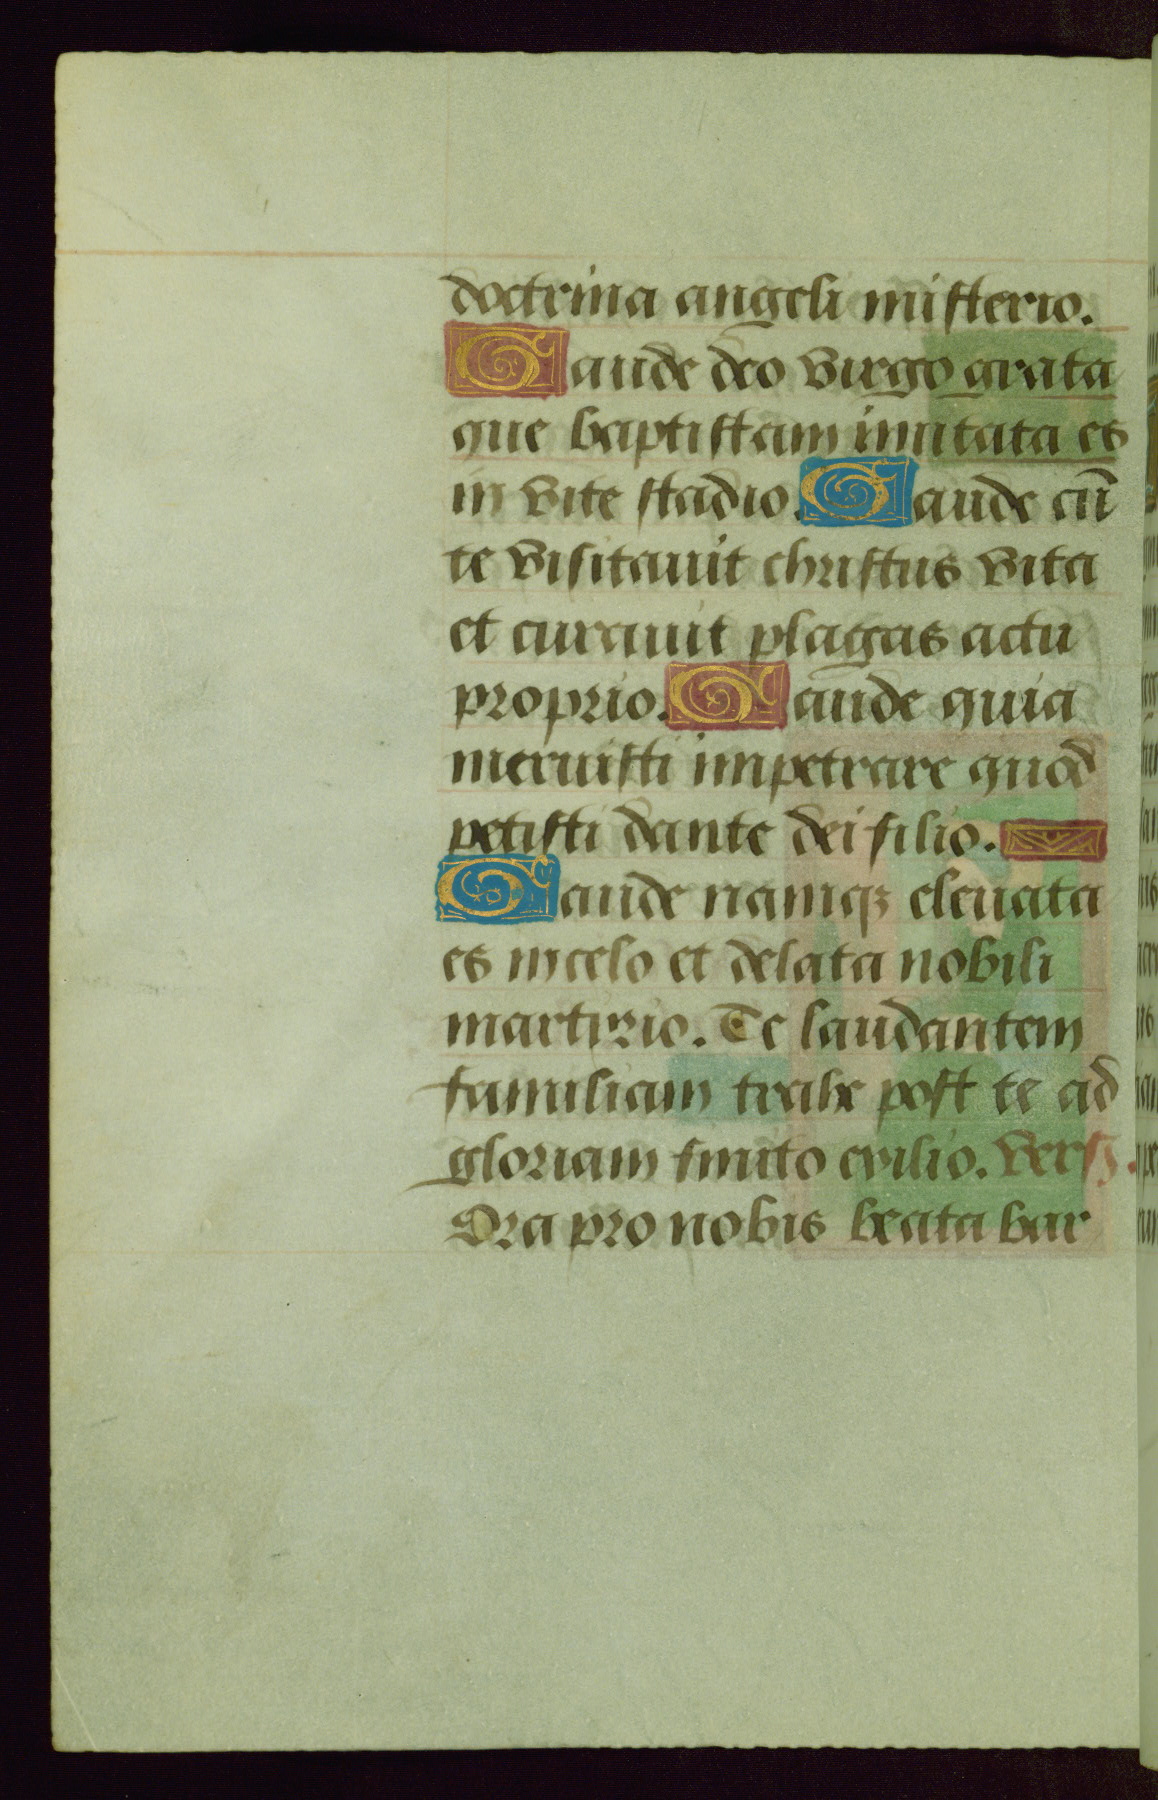 doctrina angeli misterio.
Gaude deo virgo grata
que baptistam imitata es
in vite stadio. Gaude cū
te visitavit christus vita
et curauit plagas actu
proprio. Gaude quia
meruisti impetrare quod
petisti dante dei filio.
Gaude namqꝫ eleuata
es in celo et delata nobili
martirio. Te laudantem
familiam trahe post te ad
gloriam finito exilio. Versꝫ.
Ora pro nobis beata bar